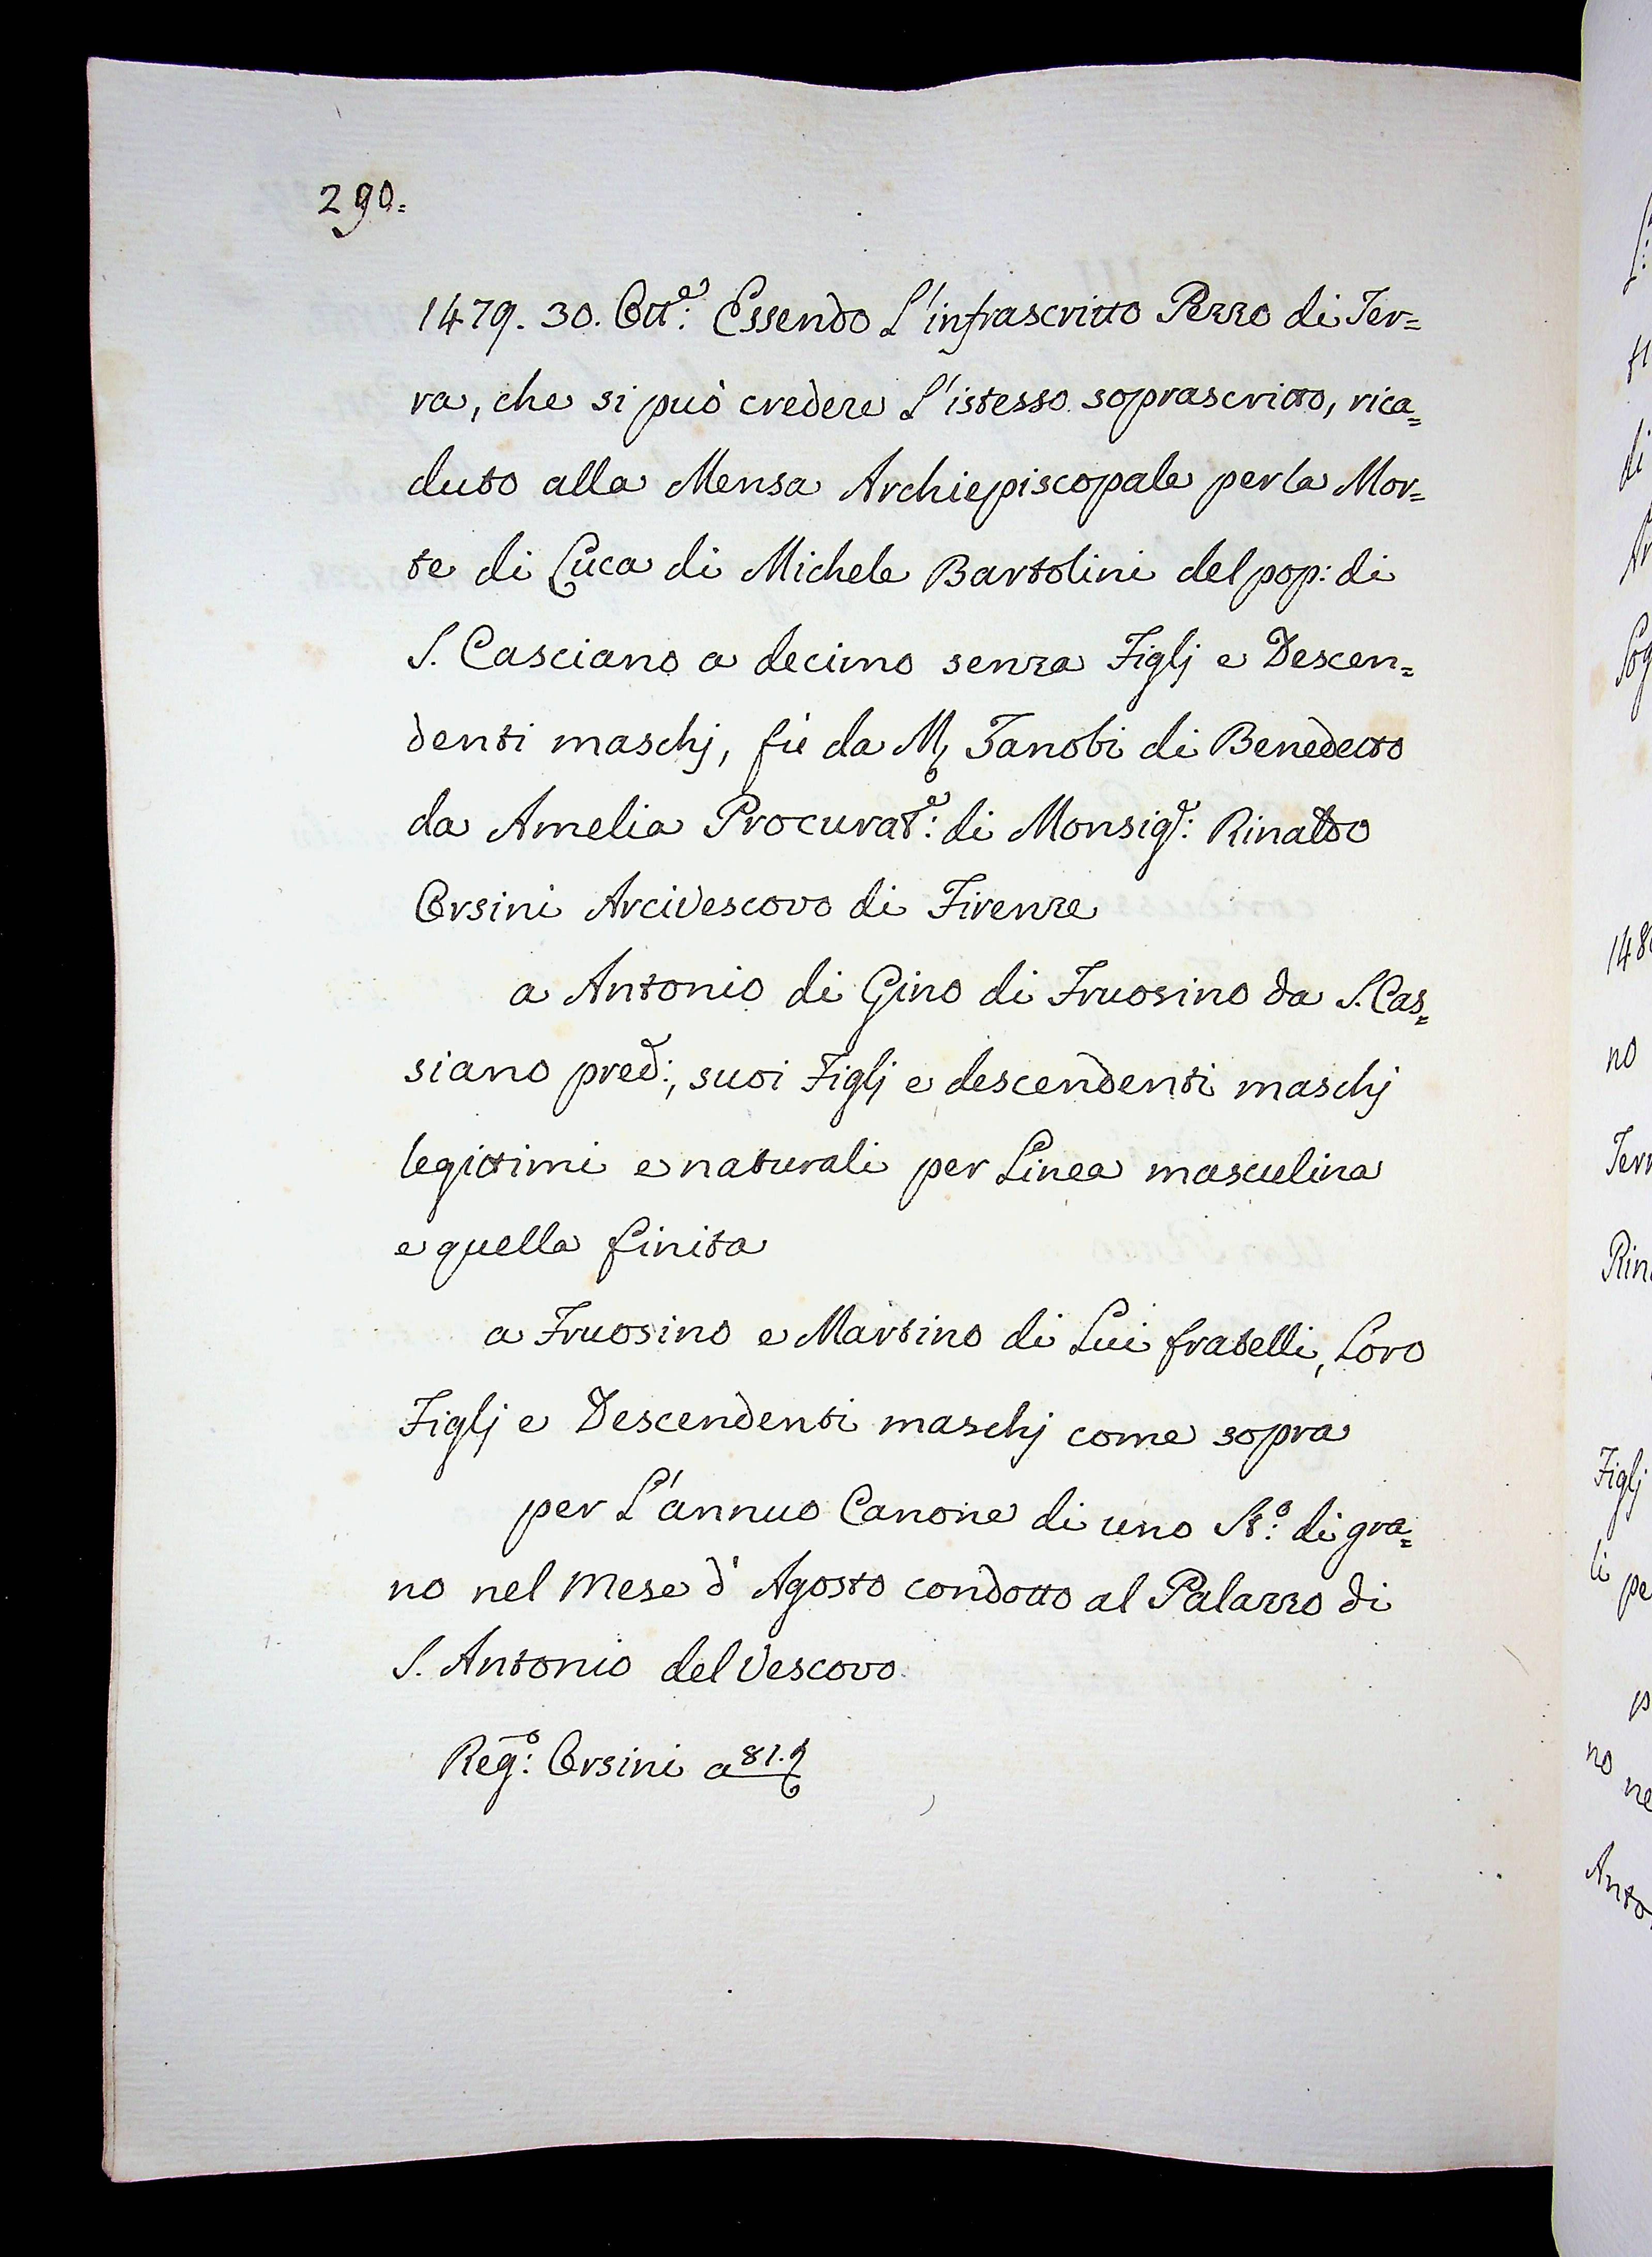 290.
1479. 30. Ott.e: Essendo L'infrascritto Pezzo di Ter=
ra, che si può credere L'istesso soprascritto, rica=
duto alla Mensa Archiepiscopale per la Mor=
te di Luca di Michele Bartolini del pop: di
S. Casciano a decimo senza Figlj e Descen=
denti maschj, fù da M Zanobi di Benedetto
da Amelia Procurat.e: di Monsig.r: Rinaldo
Orsini Arcivescovo di Firenze
a Antonio di Gino di Fruosino da S. Cas=
siano pred:, suoi Figlj e descendenti maschj
legittimi e naturali per Linea masculina
e quella finita
a Fruosino e Martino di Lui fratelli, Loro
Figlj e Descendenti maschj come sopra
per L'annuo Canone di uno St.o: di gra=
no nel Mese d'Agosto condotto al Palazzo di
S. Antonio del Vescovo
Reg.o: Orsini a 81.
148
no
Terr
Rin
Figlj
li pe
no
ne
Anto